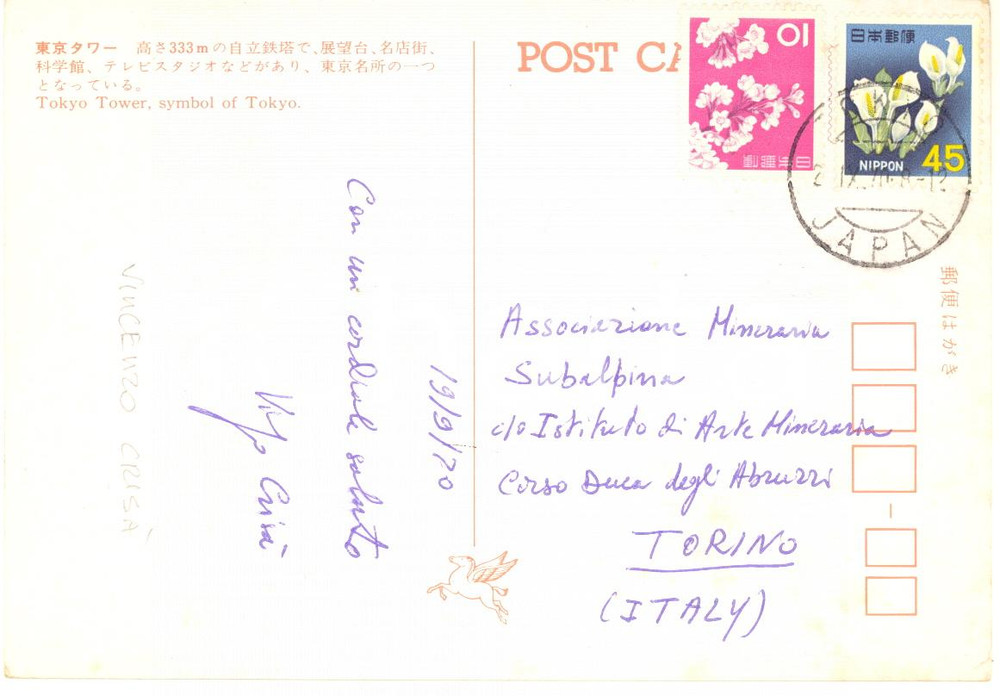 東京タワー 高さ333mの自立鉄塔で、展望台、名店街、
科学館、テレビスタジオなどがあり、東京名所の一つ
となっている。
Tokyo Tower, symbol of Tokyo.
POST CA
10
日本郵便
日本郵便
NIPPON 45
JAPAN
郵便はがき
Con un cordiale saluto
Crisà
19/9/70
VINCENZO CRISÁ
Associazione Mineraria
Subalpina
c/o Istituto di Arte Mineraria
Corso Duca degli Abruzzi
TORINO
(ITALY)